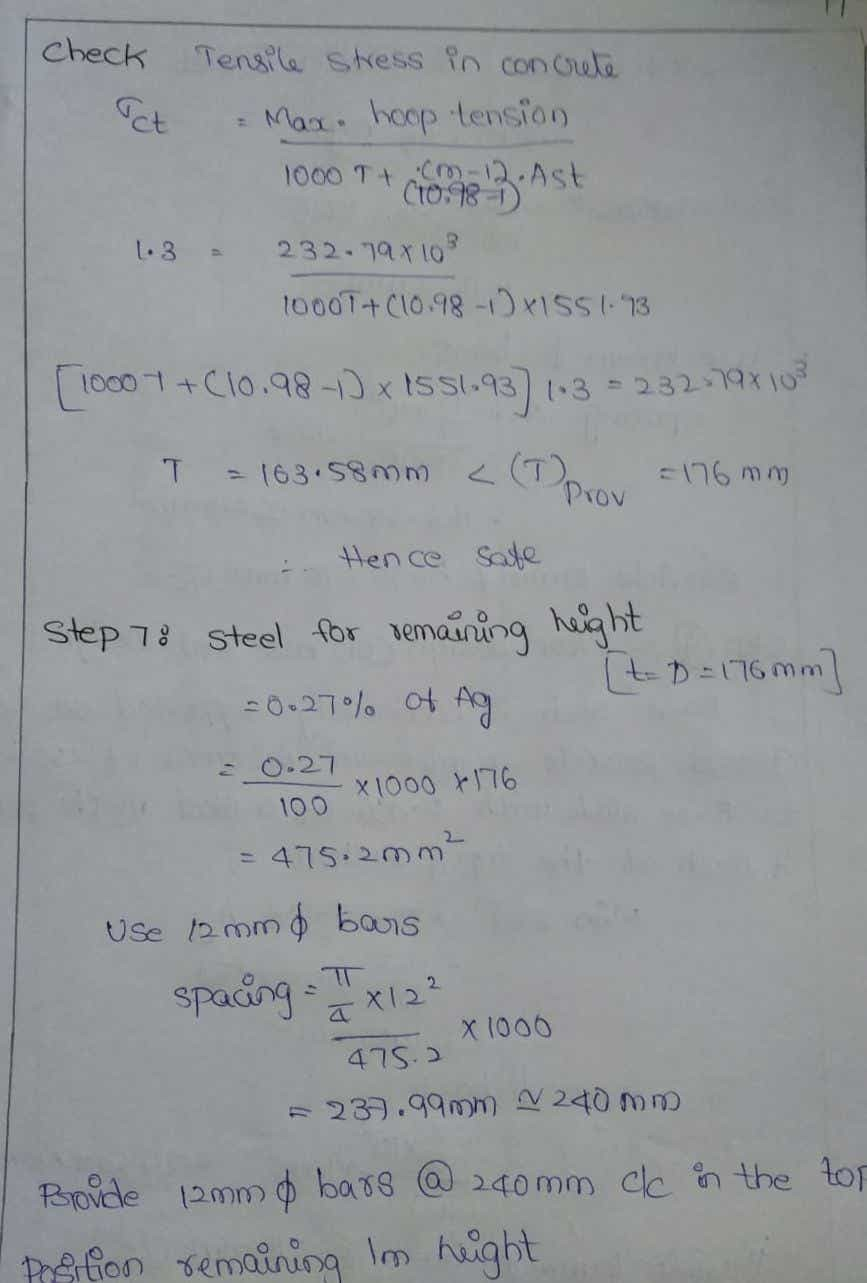 Check Tensile stress in concrete
σct = Max. hoop tension
1000 T + (m-1).Ast
(10.98-1)
1.3 = 232.79 x 10³
1000T + (10.98 -1) x 1551.93
[1000T + (10.98 -1) x 1551.93] 1.3 = 232.79 x 10³
T = 163.58mm < (T)Prov = 176 mm
∴ Hence safe
Step 7: Steel for remaining height
[t = D = 176mm]
= 0.27% of Ag
= 0.27
100 x 1000 x 176
= 475.2mm²
Use 12mm ϕ bars
spacing = π/4 x 12²
475.2 x 1000
= 237.99mm ≃ 240 mm
Provide 12mm ϕ bars @ 240mm c/c in the top
Position remaining 1m height